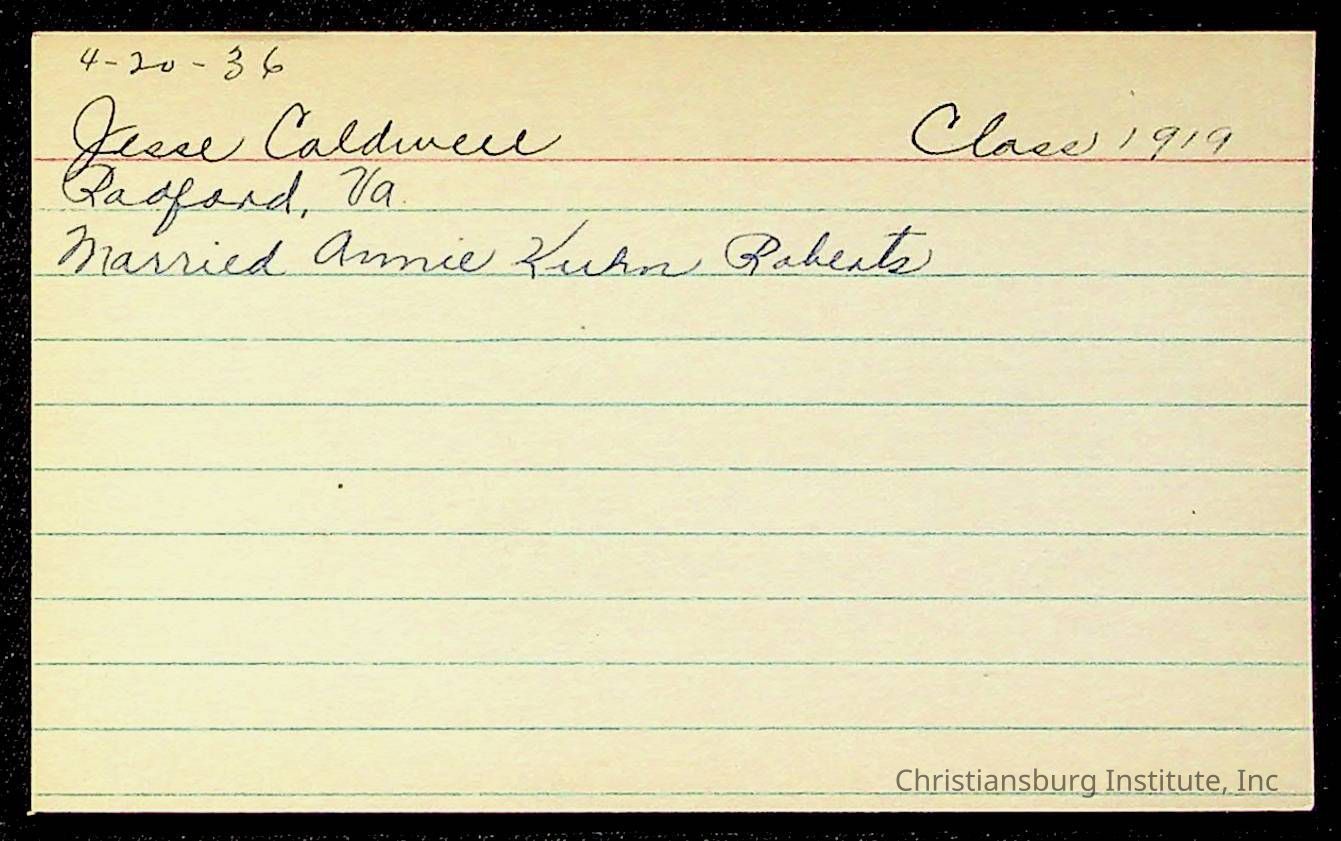 4-20-36
Jesse Caldwell Class 1919
Radford, Va.
Married Annie Kuhn Roberts
Christiansburg Institute, Inc